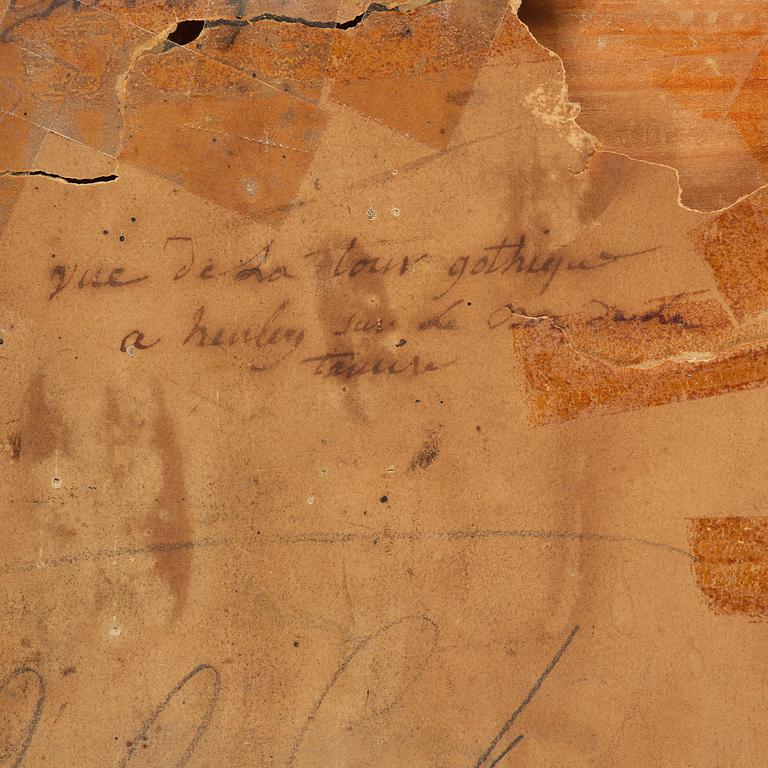 vue de La tour gothique
a henley sur le
tamise